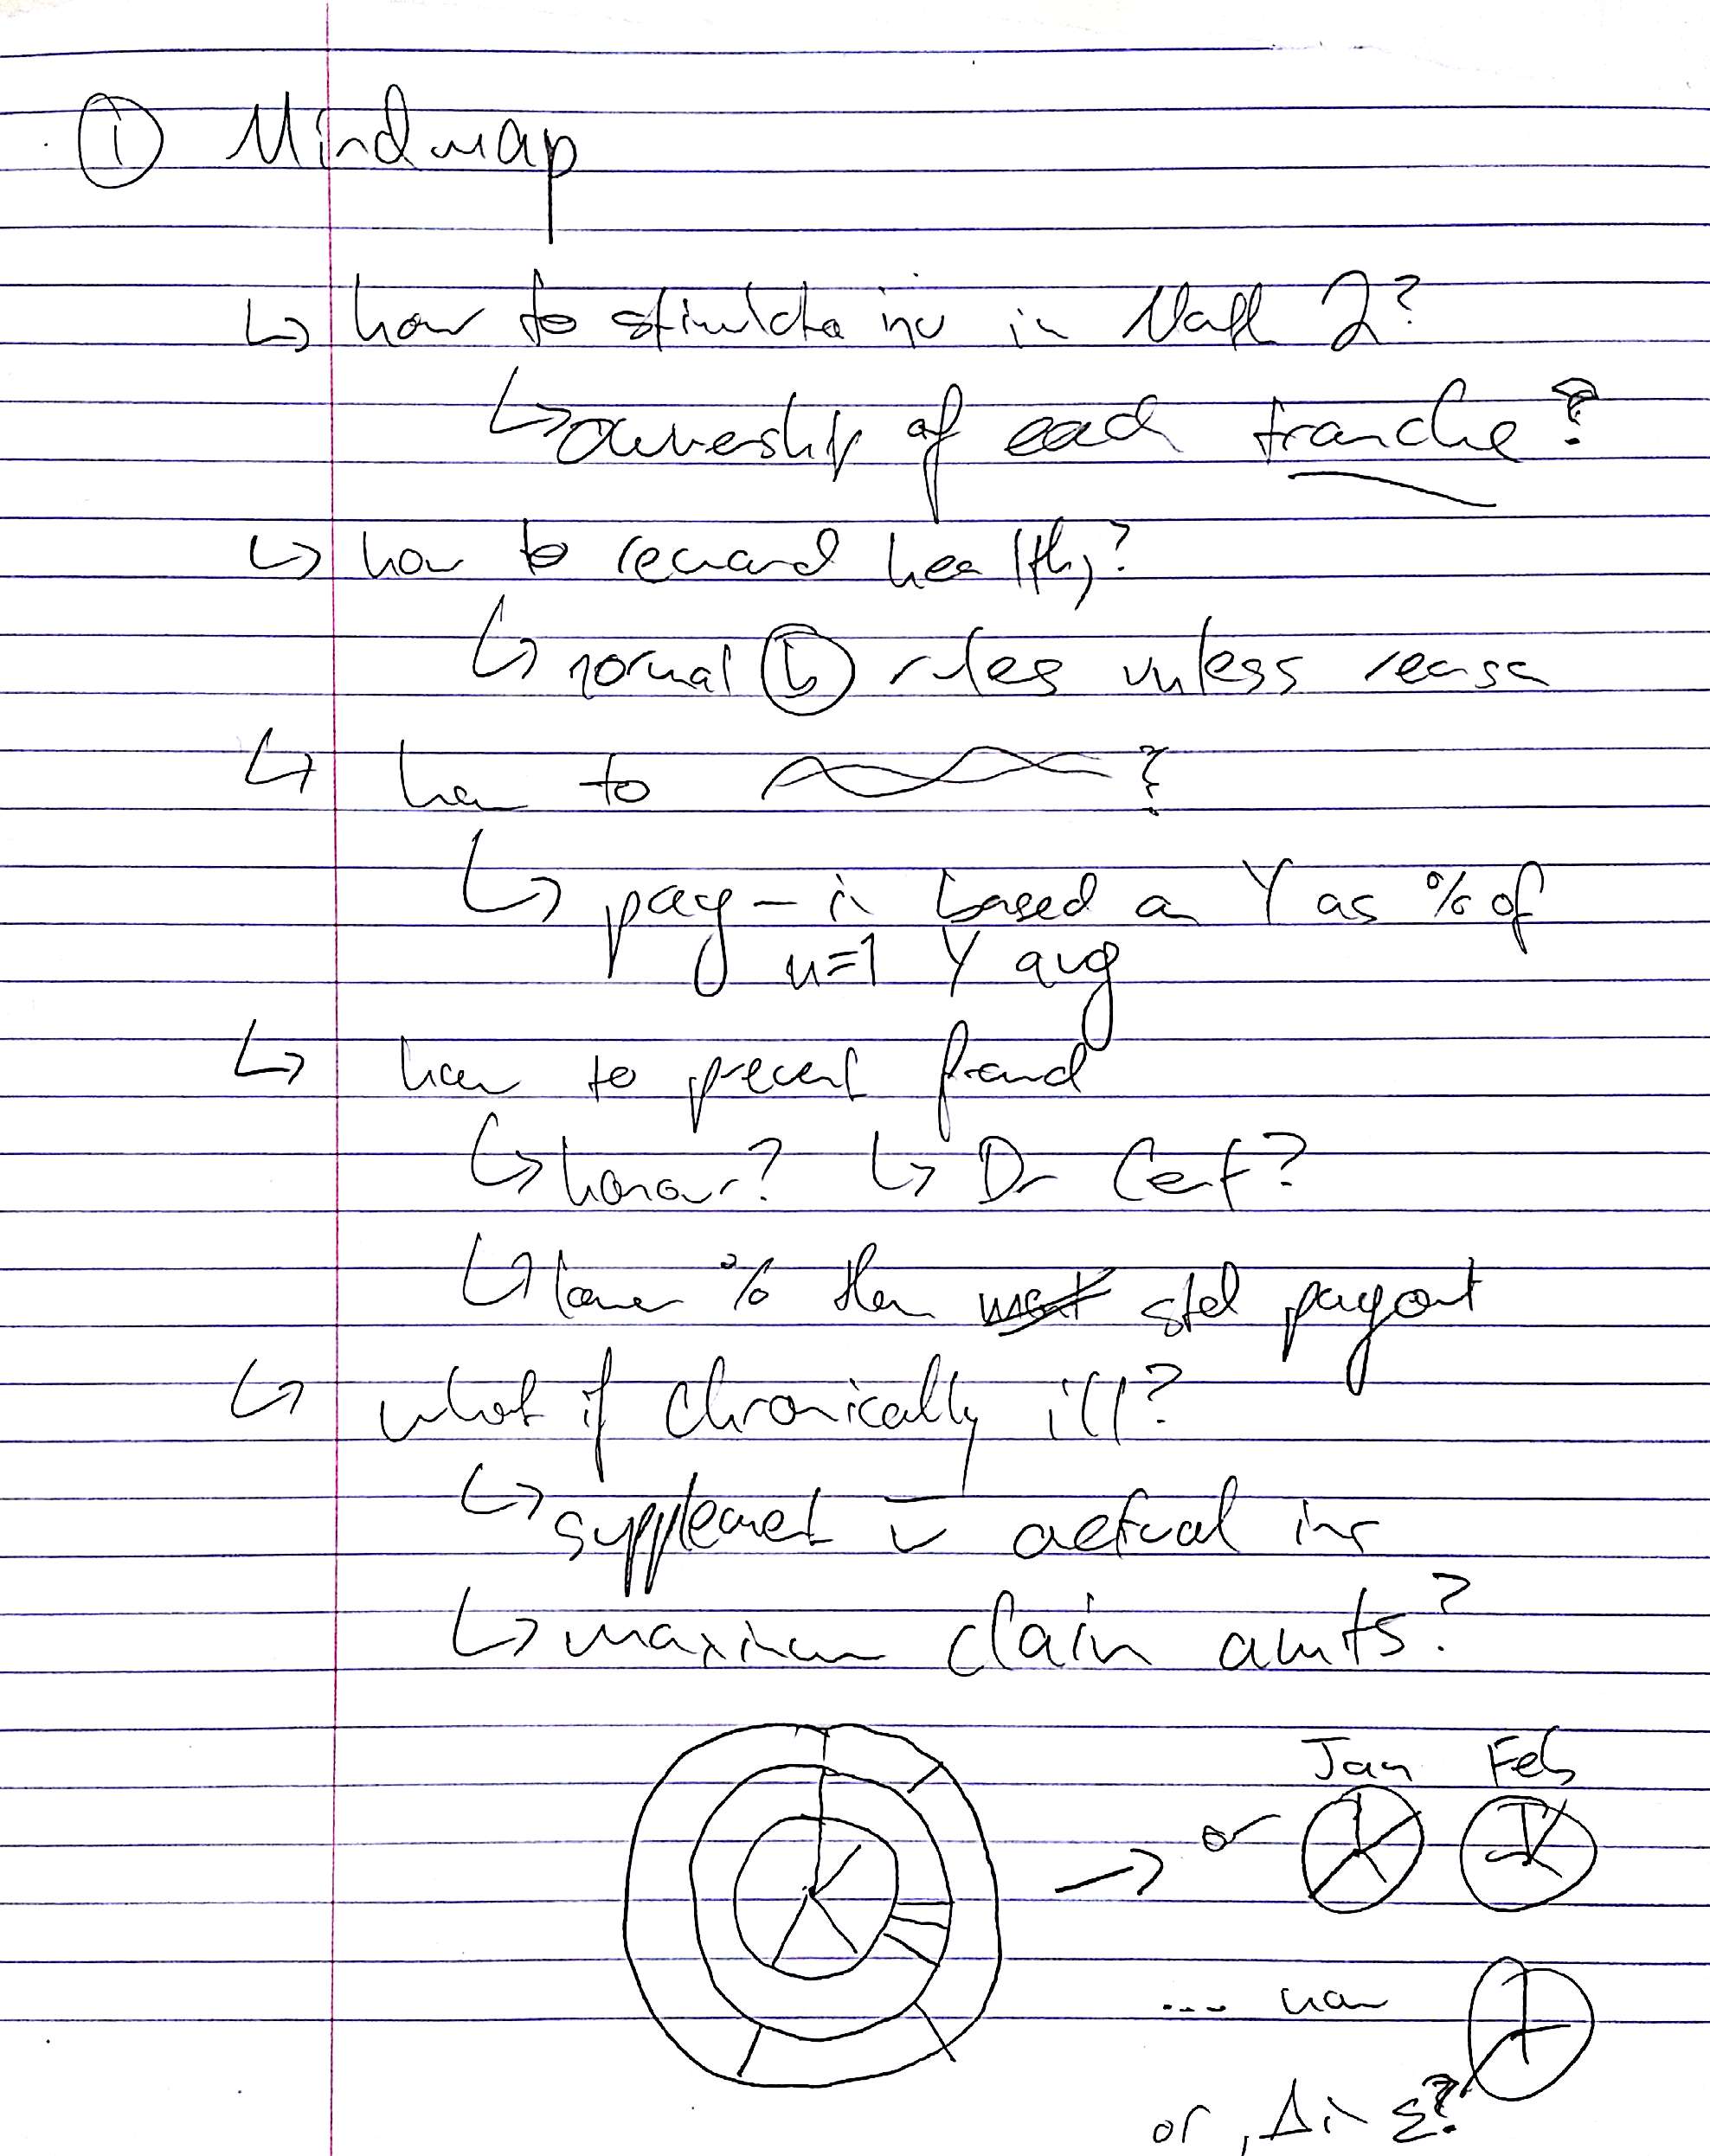 ① Mindmap
↳ how to stimulate inv in 2?
↳ ownership of each tranche?
↳ how to reward healthy?
↳ normal rules unless reason
↳ how to ?
↳ pay-in based on Y as % of
n=1 Y avg
↳ how to prevent fraud
↳ honour? ↳ Dr Cert?
↳ lower % than std payout
↳ what if chronically ill?
↳ supplement actual ins
↳ maximum claim amts?
Jan Feb
→ or
... now
or, Δ in Σ?